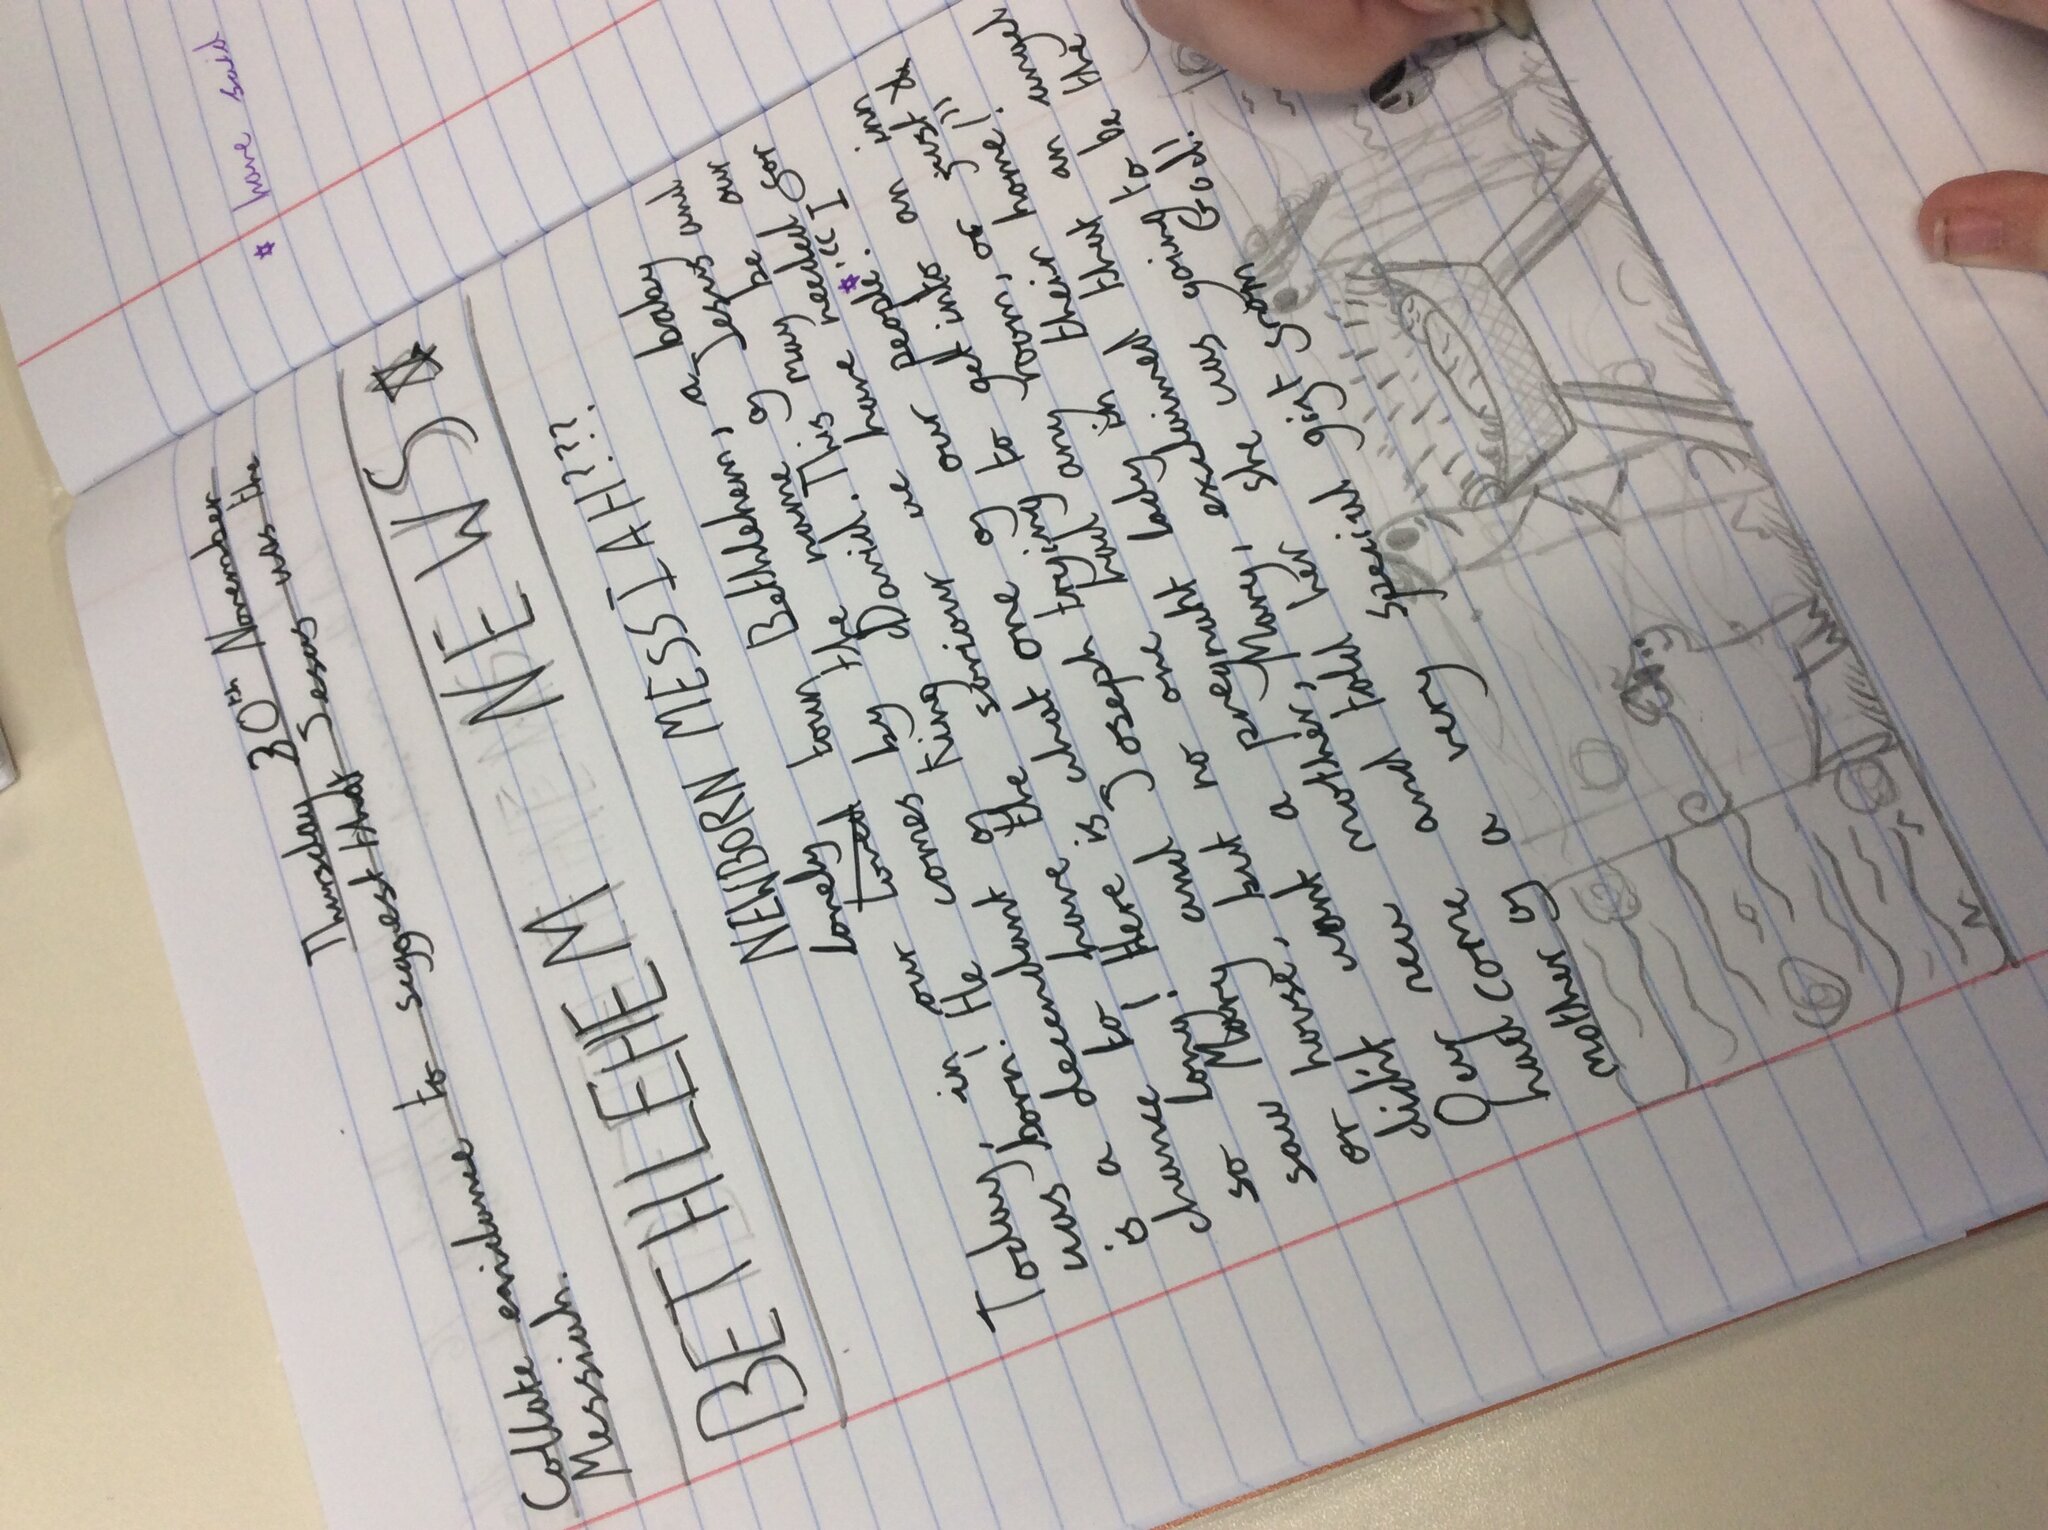 Thursday 30th November
Collate evidance to suggest that Jesus was the
Messiah.
BETHLEHEM NEWS
NEWBORN MESSIAH???
lonely
Today, in our loved town Bethlehem, a baby
was born! He comes by the name of Jesus and
is a decendant of King David. This may be our
chance to have the saviour we have needed for
so long! Here is what one of our people*: "I
saw Mary and Joseph trying to get into an inn
or house, but no one had any room, or just
didn't want a pregnaht lady in their home!"
Our new mother, Mary, exclaimed that an angel
had come and told her she was going to be the
mother of a very special gift from God!
* have said